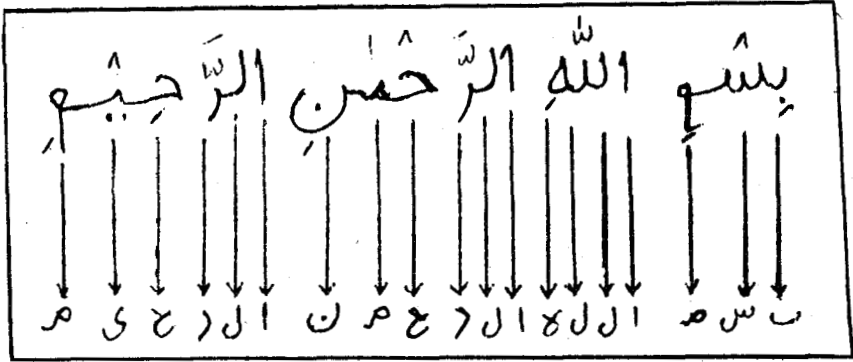 بِسْمِ اللّٰهِ الرَّحْمٰنِ الرَّحِيْمِ
ب س م ا ل ل ه ا ل ر ح م ن ا ل ر ح ی م